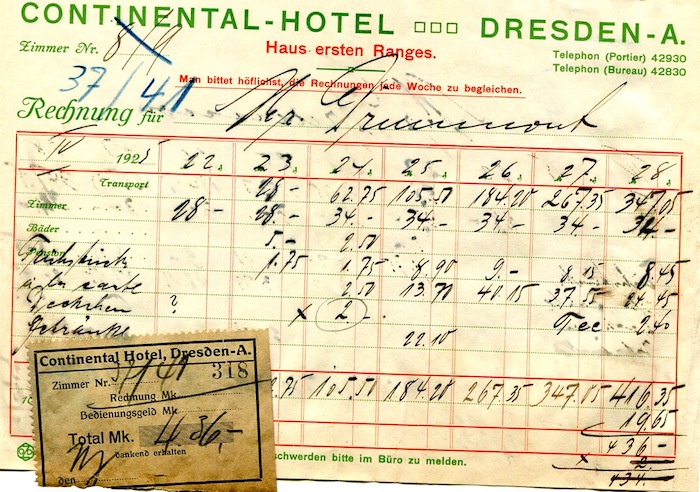 CONTINENTAL-HOTEL □□□ DRESDEN-A.
Zimmer Nr. 8/9
Haus ersten Ranges.
Telephon (Portier) 42930
Telephon (Bureau) 42830
37/41
Man bittet höflichst, die Rechnungen jede Woche zu begleichen.
Rechnung für Mr. Drummond
IV 1925 22. 23. 24. 25. 26. 27. 28.
Transport 28.- 62.75 105.50 184.20 267.35 347.05
Zimmer 28.- 28.- 34.- 34.- 34.- 34.- 34.-
Bäder 5.- 2.50
Pension
Frühstück 1.75 1.75 8.90 9.- 8.15 8.45
a la carte 2.50 13.70 40.15 37.55 24.45
? x 2.- Tee 2.40
Getränke 22.10
2.75 105.50 184.20 267.35 347.05 416.35
19.65
436.-
x 2.-
434.-
Continental Hotel, Dresden-A.
Zimmer Nr. 37/41 318
Rechnung Mk.
Bedienungsgeld Mk.
Total Mk. 436,-
dankend erhalten
den
schwerden bitte im Büro zu melden.